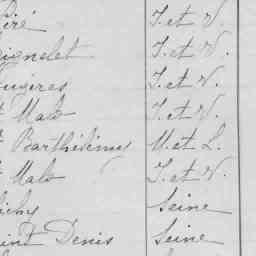 Piré I. et V.
ignelet I. et V.
ugères I. et V.
t Malo I. et V.
t Barthélemy M. et L.
t Malo I. et V.
lichy Seine
aint Denis Seine